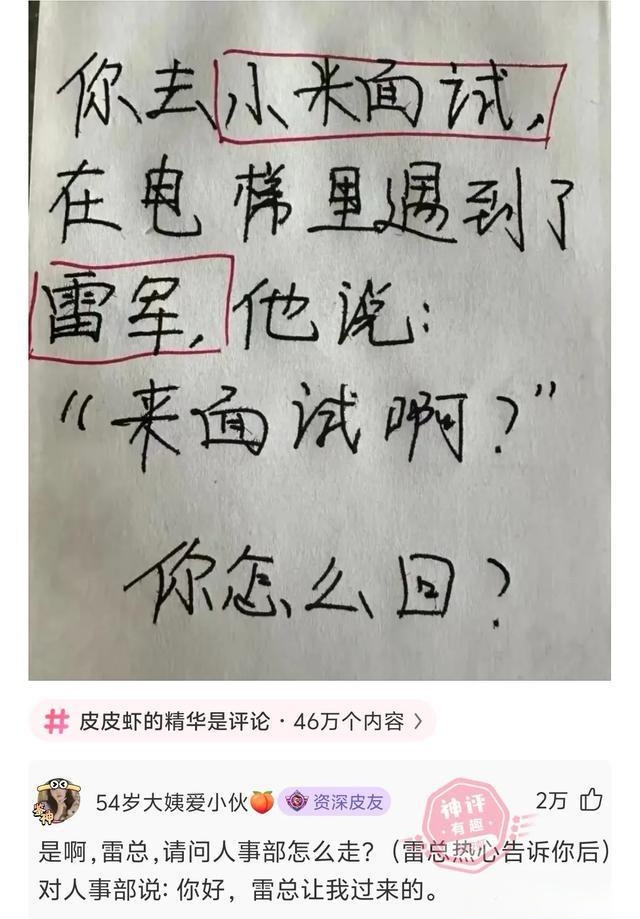 你去小米面试,
在电梯里遇到了
雷军,他说:
“来面试啊?”
你怎么回?
# 皮皮虾的精华是评论·46万个内容 >
54岁大姨爱小伙🍑 资深皮友
神评
有趣
2万
是啊,雷总,请问人事部怎么走?(雷总热心告诉你后)
对人事部说: 你好，雷总让我过来的。